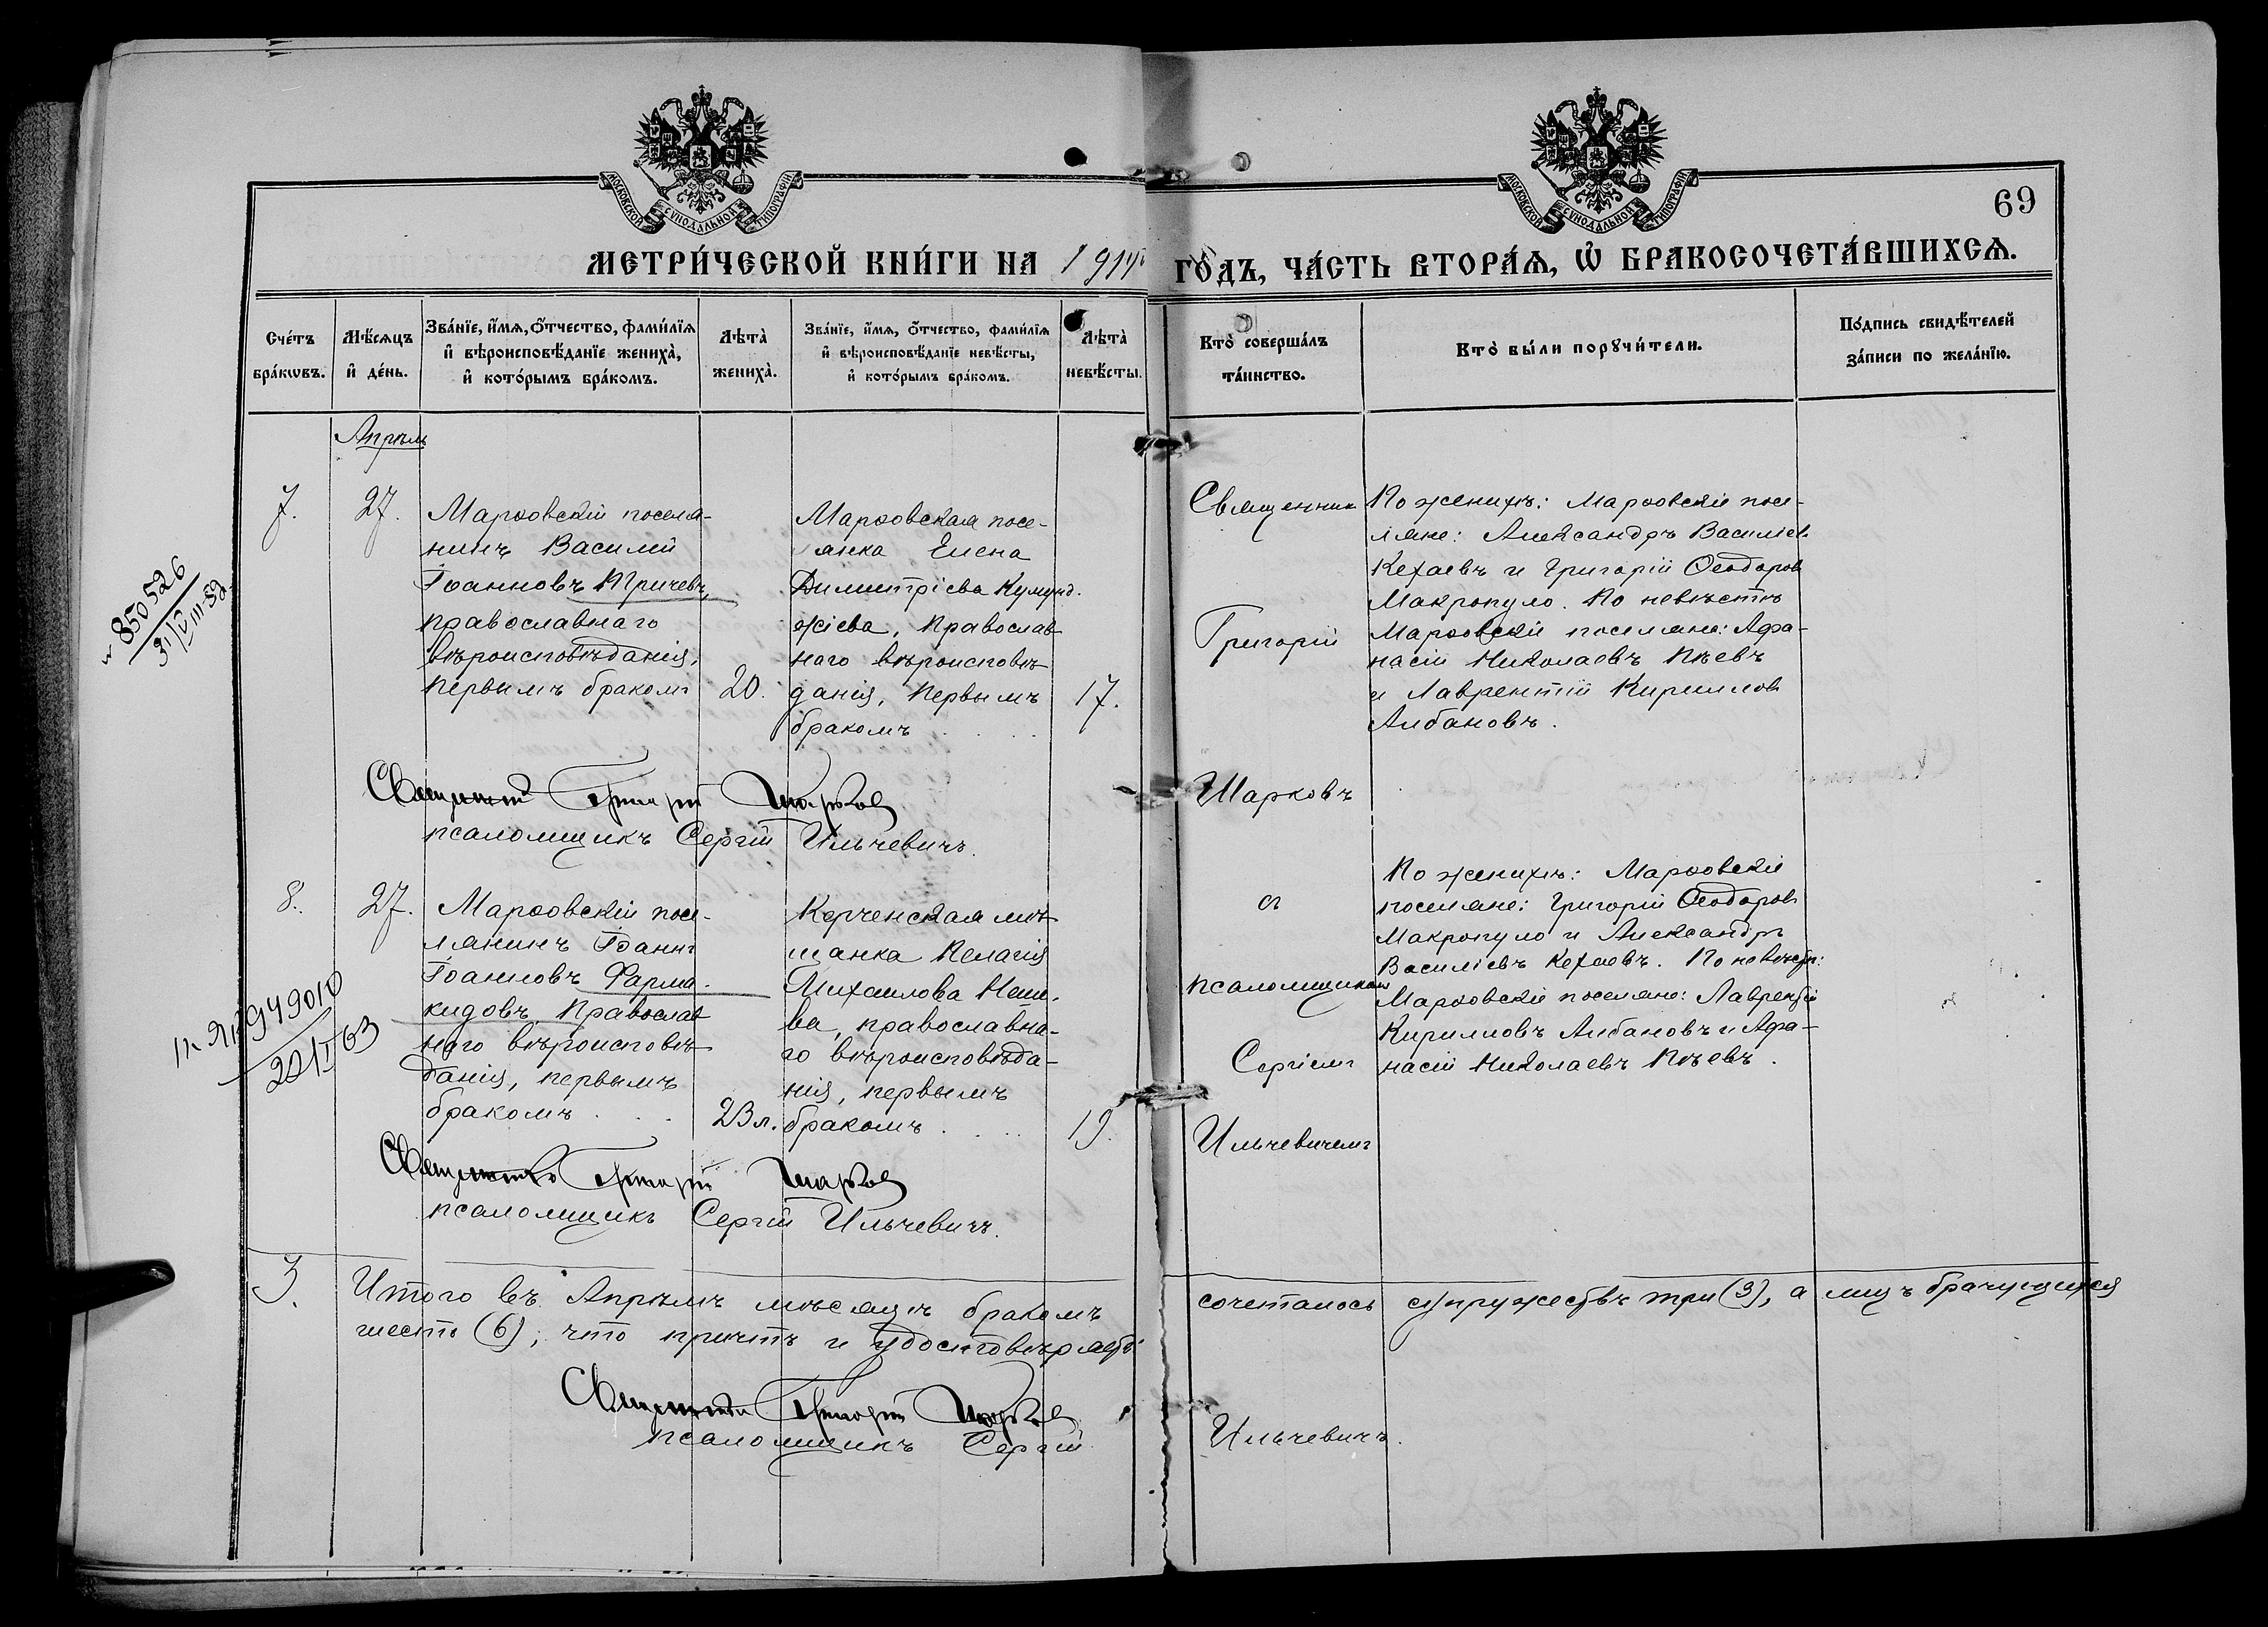 МОСКОВСКОЙ СУНОДАЛЬНОЙ ТИПОГРАФІИ
МОСКОВСКОЙ СУНОДАЛЬНОЙ ТИПОГРАФІИ
69
МЕТРИ́ЧЕСКОЙ КНИ́ГИ НА 1914 ГО́ДЪ, ЧА́СТЬ ВТОРА́Ѧ, Ѡ҆ БРАКОСОЧЕТА́ВШИХСѦ.
Сче́тъ
бра́кѡвъ.
Мѣ́сѧцъ
и҆ де́нь.
Зва́нїе, и҆́мѧ, ѻ҆́тчество, фами́лїѧ
и҆ вѣроисповѣ́данїе жениха̀,
и҆ кото́рымъ бра́комъ.
Лѣта̀
жениха̀.
Зва́нїе, и҆́мѧ, ѻ҆́тчество, фами́лїѧ
и҆ вѣроисповѣ́данїе невѣ́сты,
и҆ кото́рымъ бра́комъ.
Лѣта̀
невѣ́сты.
Кто̀ соверша́лъ
та́инство.
Кто̀ бы́ли порꙋчи́тели.
По́дпись свидѣ́телей
за́писи по жела́нїю.
Апрѣль
7.
27.
Марѳовскій поселя-
нинъ Василій
Іоанновъ Причевъ,
православнаго
вѣроисповѣданія,
первымъ бракомъ
20.
Марѳовская посе-
лянка Елена
Димитріева Кумунд-
жіева, Православ
наго вѣроисповѣ
данія, первымъ
бракомъ
17.
Священник
Григорій
Шарковъ
По женихѣ: Марѳовскіе посе-
ляне: Александръ Василіев
Кехаевъ и Григорій Ѳеодоров
Макропуло. По невѣстѣ
Марѳовскіе поселяне: Афа-
насій Николаевъ Пѣевъ
и Лаврентій Кириллов
Албановъ.
850526
Священникъ Григорій Шарков
псаломщикъ Сергій Ильчевичъ.
8.
27.
Марѳовскій посе-
лянинъ Іоаннъ
Іоанновъ Фарма-
кидовъ, Православ
наго вѣроисповѣ
данія, первымъ
бракомъ
23 л.
Керченская мѣ
щанка Пелагія
Михаилова
ва, православна-
го вѣроисповѣда-
нія, первымъ
бракомъ
19.
съ
псаломщикомъ
Сергіемъ
Ильчевичемъ
По женихѣ: Марѳовскіе
поселяне: Григорій Ѳеодоровъ
Макропуло и Александръ
Василіевъ Кехаевъ. По невѣстѣ:
Марѳовскіе поселяне: Лаврентій
Кирилловъ Албановъ и Афа-
насій Николаевъ Пѣевъ.
949010
Священникъ Григорій Шарков
псаломщикъ Сергій Ильчевичъ.
3.
Итого въ Апрѣлѣ мѣсяцѣ бракомъ сочеталось супружествъ три (3), а лицъ брачущихся
шесть (6); что причтъ и удостовѣряетъ
Священникъ Григорій Шарков
псаломщикъ Сергій Ильчевичъ.